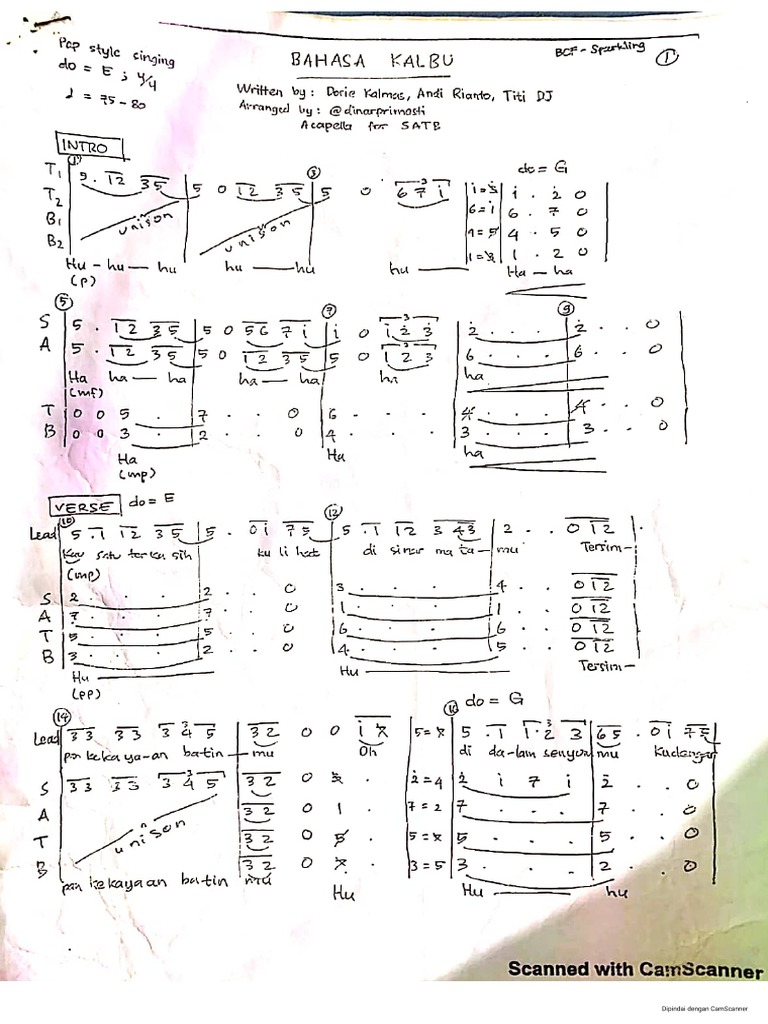 Pop style singing
do = E ; 4/4
♩ = 75-80
BAHASA KALBU
BCF - Sparkling
1
Written by : Dorie Kalmas, Andi Rianto, Titi DJ
Arranged by : @dinarprimasti
Acapella for SATB
INTRO
do = G
T1 5 . 12 35 5 0 12 35 5 0 671 1=3 1 . 2 0
T2 6=1 6 . 7 0
B1 unison unison 4=5 4 . 5 0
B2 1=3 1 . 2 0
Hu - hu — hu hu — hu hu — Ha — ha
(p)
5 7 9
S 5 . 12 35 5 0 56 71 1 0 123 2 . . . 2 . . 0
A 5 . 12 35 5 0 12 35 5 0 123 6 . . . 6 . . 0
Ha ha — ha ha — ha ha ha
(mf)
T 0 0 5 . 7 . . 0 6 . . . 4 . . . 4 . . 0
B 0 0 3 . 2 . . 0 4 . . . 3 . . . 3 . . 0
Ha Ha ha
(mp)
VERSE do = E
10 12
Lead 5 .1 12 35 5 . 01 75 5 .1 12 3 43 2 . . 012
Kau satu terka sih ku li hat di sinar ma ta — mu Tersim -
(mp)
S 2 . . . 2 . . 0 3 . . . 4 . . 012
A 7 . . . 7 . . 0 1 . . . 1 . . 012
T 5 . . . 5 . . 0 6 . . . 6 . . 012
B 3 . . . 2 . . 0 4 . . . 5 . . 012
Hu — Hu — Tersim -
(pp)
14 16 do = G
Lead 33 33 345 32 0 0 5=7 5 .1 1.2 3 65 . 01 75
pan kekaya-an batin — mu Oh di da-lam senyum mu kudengar
S 33 33 345 32 0 2=4 2 1 7 1 2 . . 0
A 32 0 1 . 7=2 7 . . . 7 . . 0
T unison 32 0 5 . 5 . . . 5 . . 0
B 32 0 3=5 3 . . . 2 . . 0
pan kekayaan batin mu Hu Hu — hu
Scanned with CamScanner
Dipindai dengan CamScanner